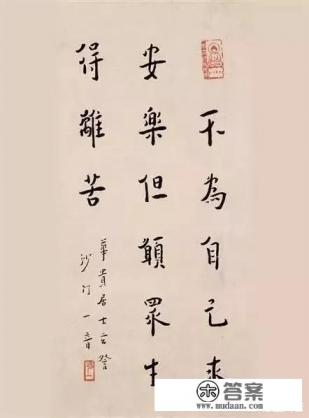 不為自己求
安樂但願眾生
得離苦
華貴居士玄詧
沙門一音
答案
www.mudaan.com